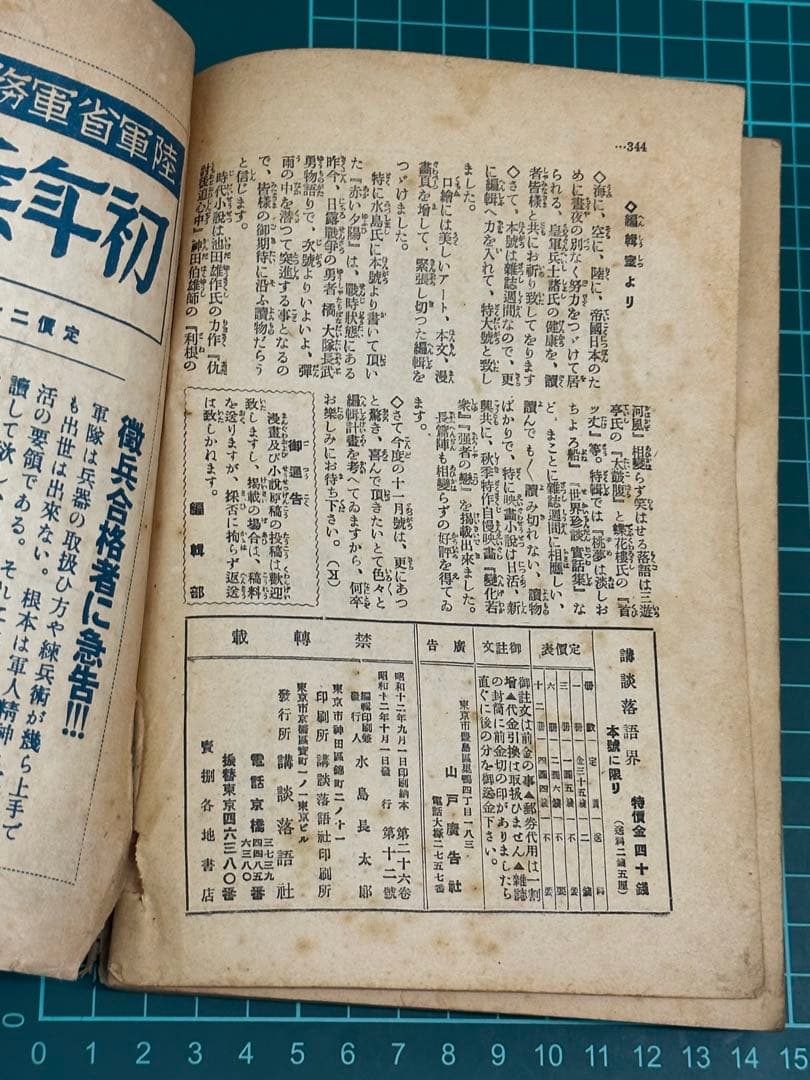 344…
◇編輯室より
◇海に、空に、陸に、帝國日本のた
めに晝夜の別なく努力をつゞけて居
られる、皇軍兵士諸氏の健康を、讀
者皆樣と共にお祈り致してをります
◇さて、本號は雜誌週間なので、更
に編輯へ力を入れて、特大號と致し
ました。
口繪には美しいアート、本文、漫
畫頁を增して、緊張し切つた編輯を
つゞけました。
特に水島氏に本號より書いて頂い
た『赤い夕陽』は、戰時狀態にある
昨今、日露戰爭の勇者 橘 大隊長武
勇物語りで、次號よりいよいよ、彈
雨の中を潜つて突進する事となるの
で、皆樣の御期待に沿ふ讀物だらう
と信じます。
時代小說は池田雄作氏の力作『仇
討後道心中』神田伯雄師の『利根の
河風』相變らず笑はせる落語は三遊
亭氏の『太鼓腹』と蝶花樓氏の『首
ッ丈』等。特輯では『桃夢は淡しお
ちよろ船』『世界珍談 實話集』な
ど、まことに雜誌週間に相應しい、
讀んでもく讀み切れない、讀物
ばかりで、特に映畫小說は日活、新
興共に、秋季特作自慢映畫『變化若
衆』『强者の戀』を揭載出來ました。
長篇陣も相變らずの好評を得てゐ
ます。
◇さて今度の十一月號は、更にあつ
と驚き、喜んで頂きたいとて色々と
編輯計畫を考へてゐますから、何卒
お樂しみにお待ち下さい。
御通告
漫畫及び小說原稿の投稿は歡迎
致しますし、揭載の場合は、稿料
を送りますが、採否に拘らず返送
は致しかねます。
編輯部
講談落語界
本號に限り 特價金四十錢
(送料二錢五厘)
定價表
册數 定價 送料
一册 金三十五錢 二錢
三册
六册
十二册
御註文
御註文は前金の事▲郵劵代用は一割
增▲代金引換は取扱ひません▲雜誌
の封筒に前金切の印がありましたら
直ぐに後の分を御送金下さい。
廣告
東京市豐島區巢鴨四丁目一八三
山戸廣告社
電話大塚二七五七番
禁轉載
昭和十二年九月一日印刷納本 第二十六卷
昭和十二年十月一日發行 第十二號
編輯印刷兼
發行人 水島長太郎
東京市神田區錦町二ノ十一
印刷所 講談落語社印刷所
東京市京橋區寶町一ノ一東京ビル
發行所 講談落語社
電話京橋
振替東京四六三八〇番
賣捌各地書店
陸軍省軍務
初年兵
定價二
徵兵合格者に急告!!!
軍隊は兵器の取扱ひ方や練兵術が幾ら上手で
も出世は出來ない。根本は軍人精神
活の要領である。それ
讀して欲し
0
0 1 2 3 4 5 6 7 8 9 10 11 12 13 14 15